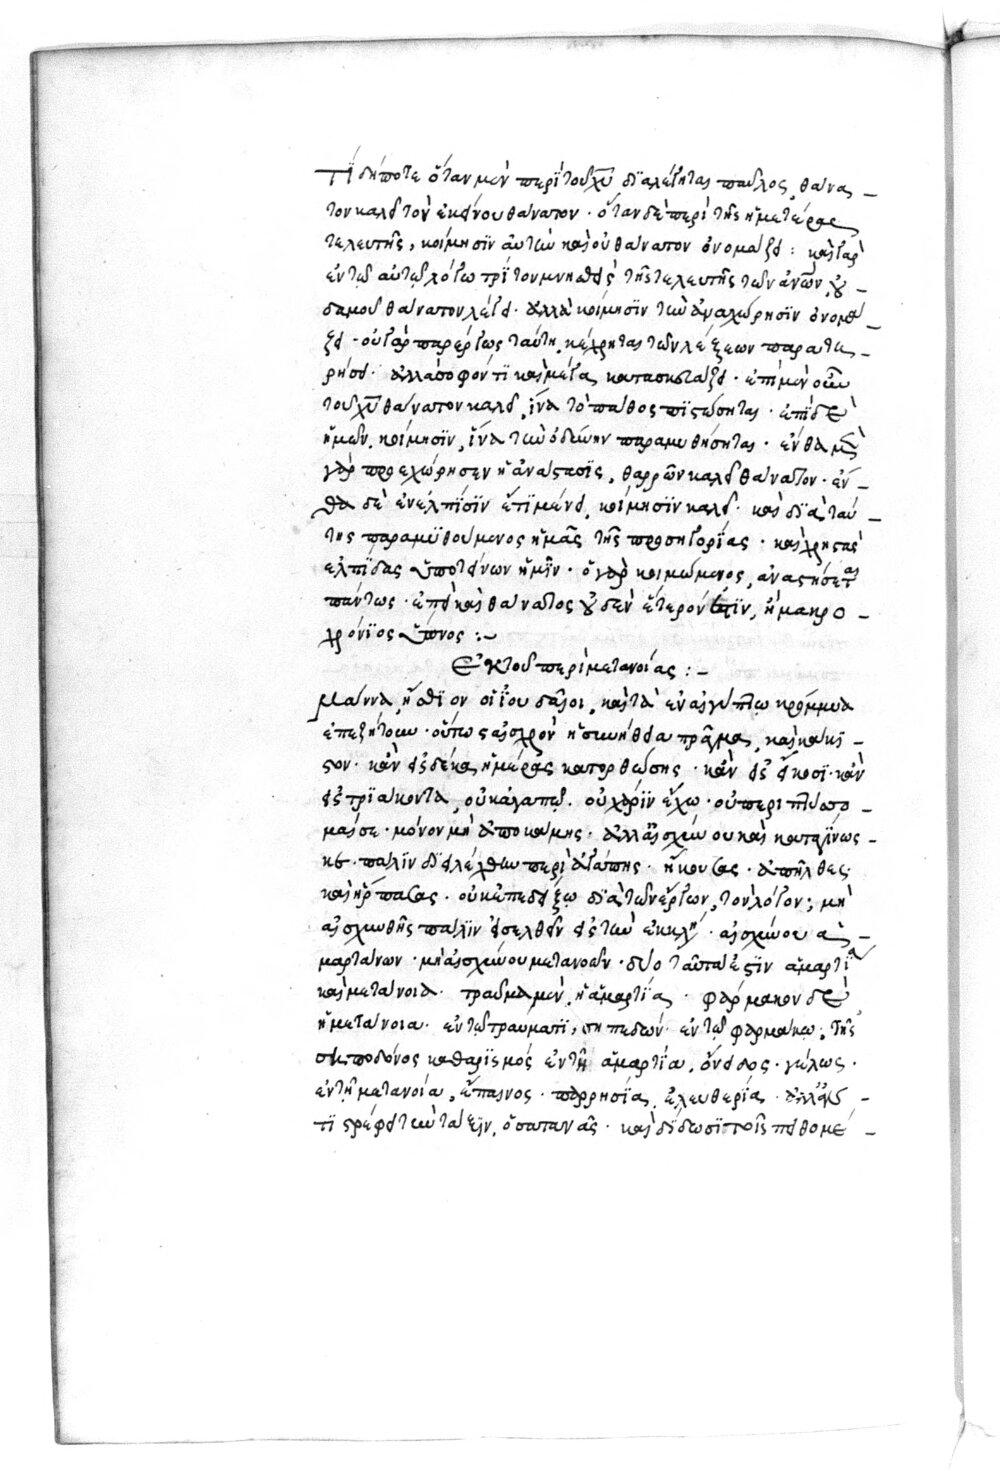 Τί δήποτε ὅταν μὲν περὶ τοῦ χῦ διαλέγηται παῦλος, θάνα
τον καλεῖ τὸν ἐκείνου θάνατον · ὅταν δὲ περὶ τῆς ἡμετέρας
τελευτῆς, κοίμησιν αὐτὴν καὶ οὐ θάνατον ὀνομάζει : καὶ γὰρ
ἐν τῷ αὐτῷ λόγῳ τρίτον μνησθεὶς τῆς τελευτῆς τῶν ἀνῶν, οὐ
δαμοῦ θάνατον λέγει · ἀλλὰ κοίμησιν τὴν ἀναχώρησιν ὀνομά
ζει · οὐ γὰρ παρέργως ταύτῃ κέχρηται τῶν λέξεων παρατη
ρήσει · ἀλλὰ σοφόν τι καὶ μέγα κατασκευάζει · ἐπὶ μὲν οὖν
τοῦ χῦ θάνατον καλεῖ, ἵνα τὸ πάθος πιστώσηται · ἐπὶ δὲ
ἡμῶν, κοίμησιν, ἵνα τὴν ὀδύνην παραμυθήσηται · ἔνθα μὲν
γὰρ προεχώρησεν ἡ ἀνάστασις, θαρρῶν καλεῖ θάνατον · ἔν
θα δὲ ἐν ἐλπίσιν ἔτι μένει, κοίμησιν καλεῖ · καὶ διὰ ταύ
της παραμυθούμενος ἡμᾶς τῆς προσηγορίας · καὶ χρηστὰς
ἐλπίδας ὑποτείνων ἡμῖν · ὁ γὰρ κοιμώμενος, ἀναστήσεται
πάντως · ἐπεὶ καὶ θάνατος οὐδὲν ἕτερόν ἐστιν, ἢ μακρο
χρόνιος ὕπνος :~
Ἐκ τοῦ περὶ μετανοίας :~
Μάννα ἤσθιον οἱ ἰουδαῖοι, καὶ τὰ ἐν αἰγύπτῳ κρόμμυα
ἐπεζήτουν · οὕτως αἰσχρὸν ἡ συνήθεια πρᾶγμα, καὶ κάκι
στον · κἂν εἰς δέκα ἡμέρας κατορθώσῃς · κἂν εἰς εἴκοσι · κἂν
εἰς τριάκοντα, οὐκ ἀγαπῶ · οὐ χάριν ἔχω · οὐ περιπτύσσο
μαί σε · μόνον μὴ ἀποκάμῃς · ἀλλ' αἰσχύνου καὶ καταγίνωσ
κε · πάλιν διειλέχθην περὶ ἀγάπης · ἤκουσας · ἀπῆλθες
καὶ ἥρπασας · οὐκ ἐπεδείξω διὰ τῶν ἔργων, τὸν λόγον ; μὴ
αἰσχυνθῇς πάλιν εἰσελθεῖν εἰς τὴν ἐκκλη · αἰσχύνου ἁ
μαρτάνων · μὴ αἰσχύνου μετανοῶν · δύο ταῦτά ἐστιν ἁμαρτία
καὶ μετάνοια · τραῦμα μὲν, ἡ ἁμαρτία · φάρμακον δὲ
ἡ μετάνοια · ἐν τῷ τραύματι, σηπεδών · ἐν τῷ φαρμάκῳ, τῆς
σηπεδόνος καθαρισμός · ἐν τῇ ἁμαρτίᾳ, ὄνειδος · γέλως ·
ἐν τῇ μετανοίᾳ, ἔπαινος · παρρησία, ἐλευθερία · ἀλλ' ἀν
τιστρέφει τὴν τάξιν, ὁ σατανᾶς · καὶ δίδωσι τοῖς πειθομέ